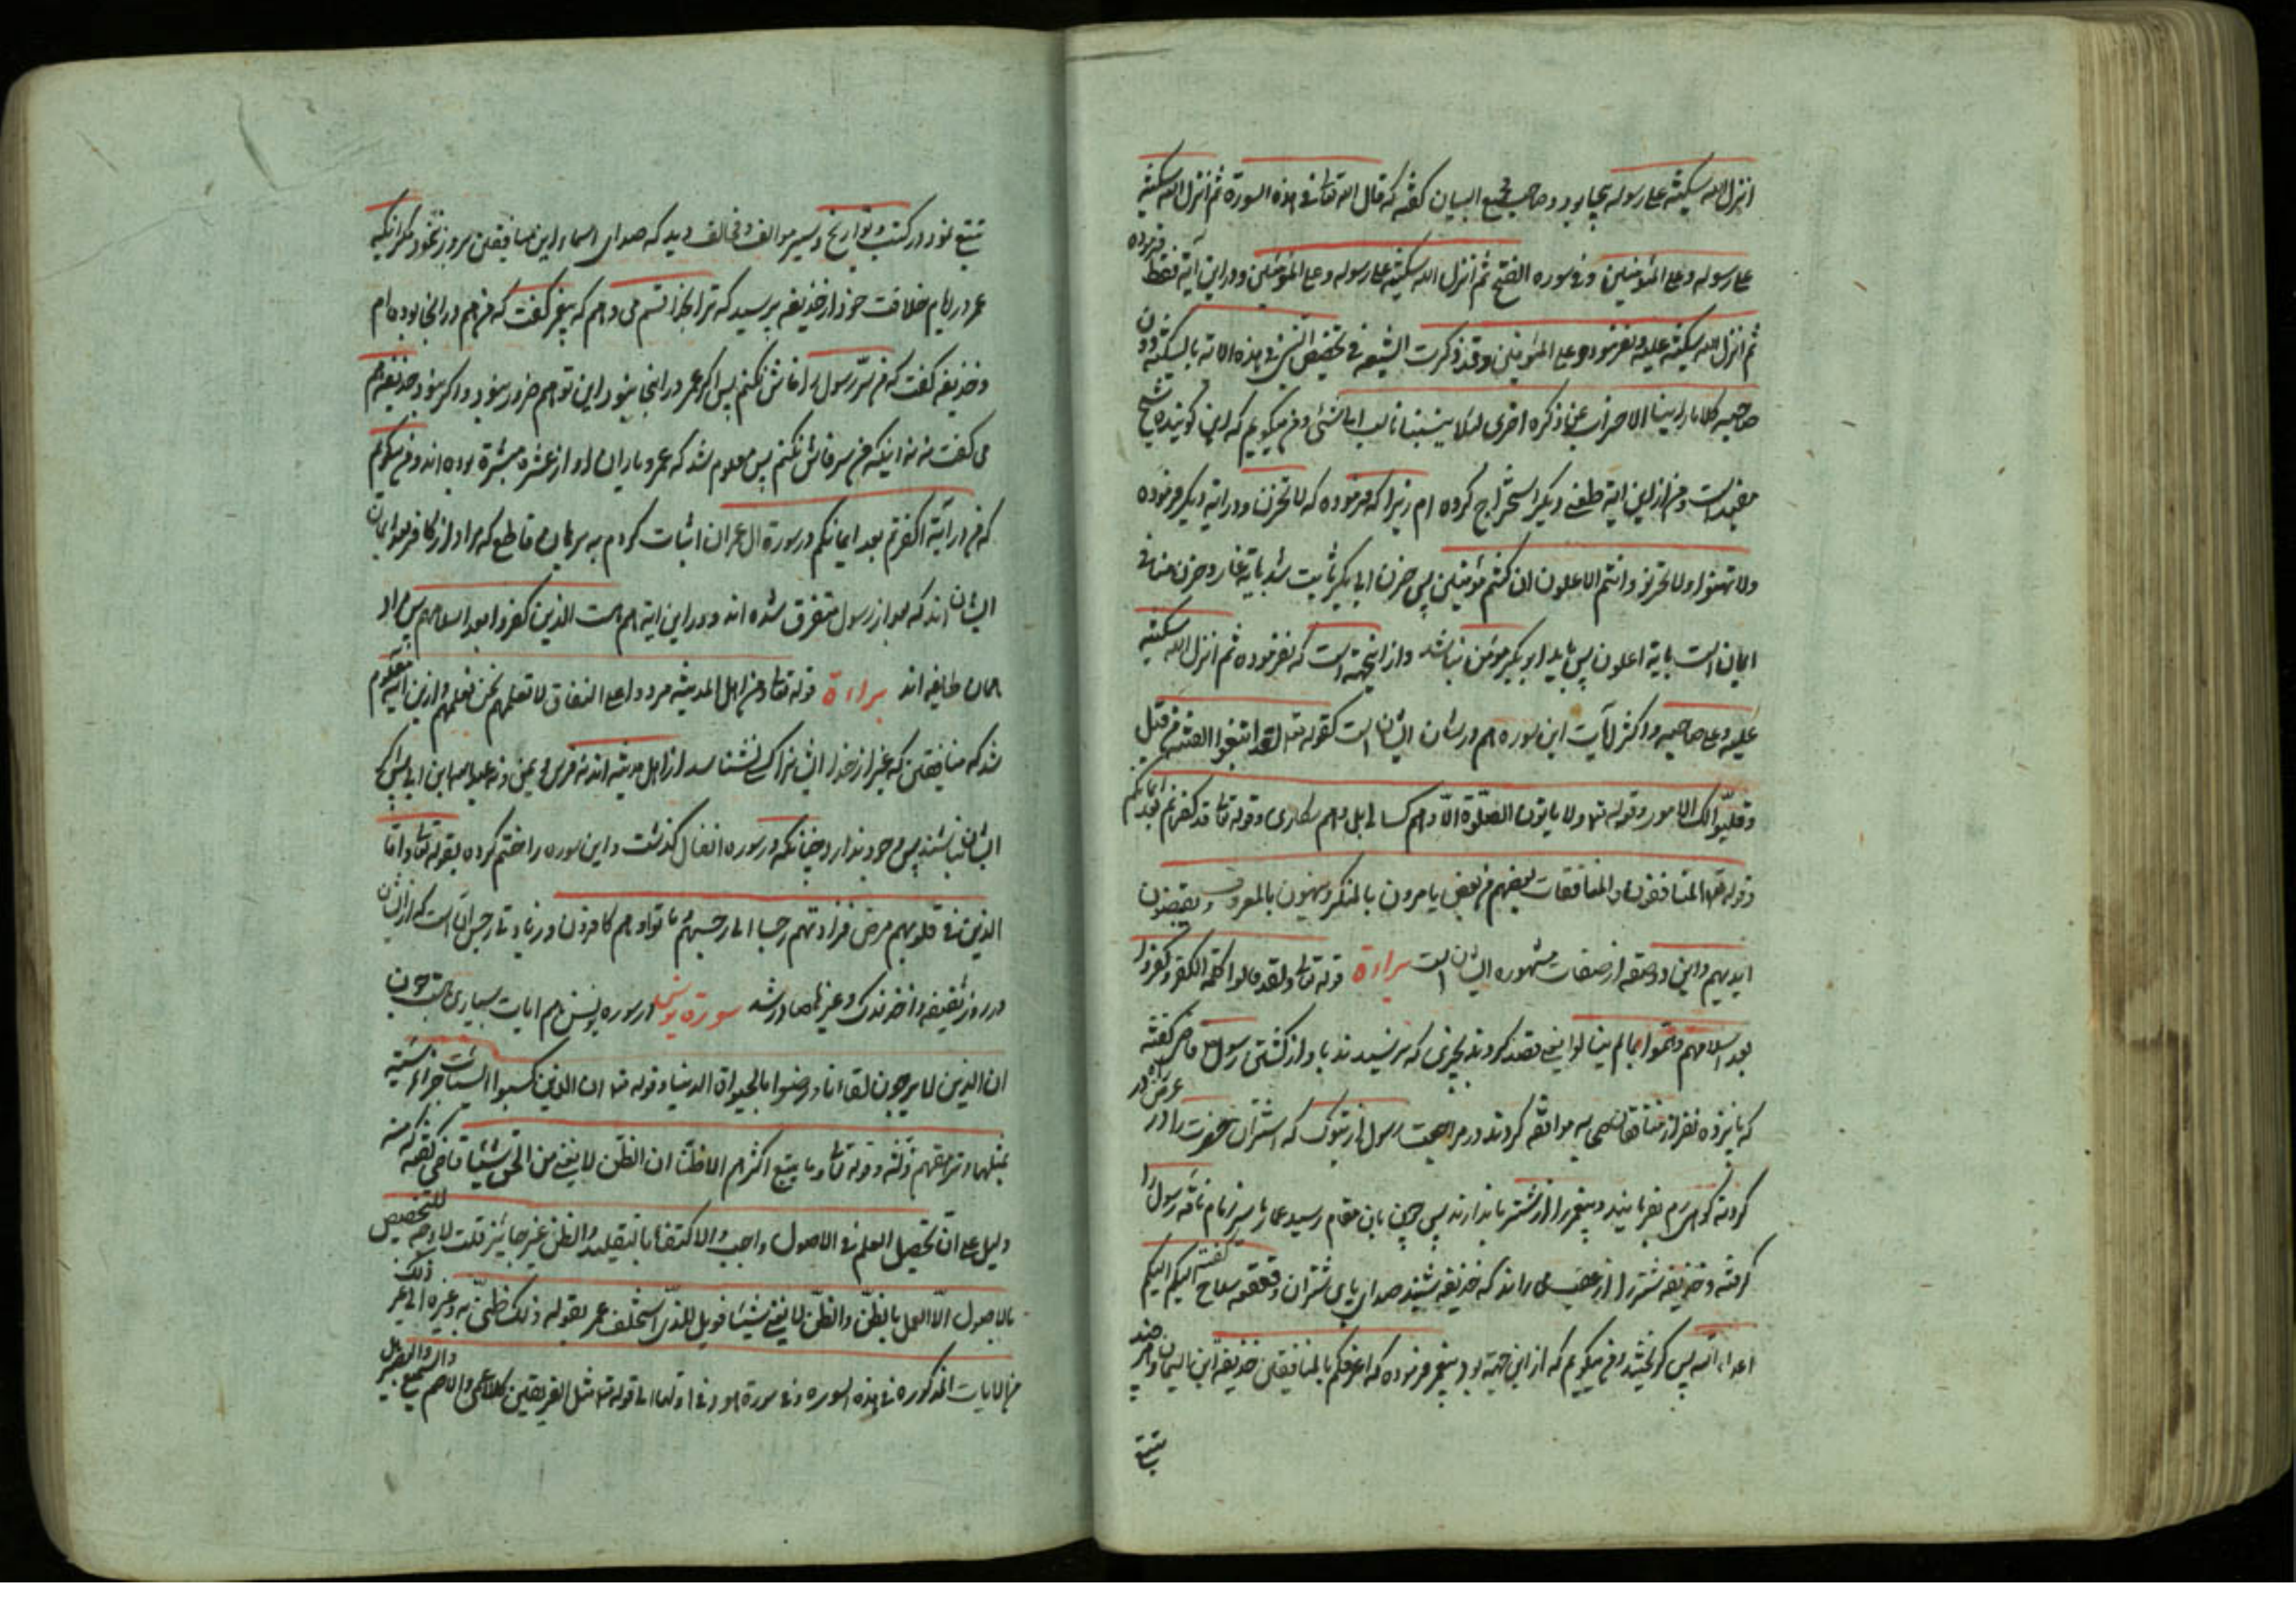 انزل الله سکینته علی رسوله بجا بود و صاحب مجمع البیان گفته که قال الله تعالی فی هذه السورة ثم انزل الله سکینته
علی رسوله و علی المؤمنین و در سوره الفتح ثم انزل الله سکینته علی رسوله و علی المؤمنین و در این آیة فقط فرموده
ثم انزل الله سکینته علیه و نفرموده و علی المؤمنین و قد ذکرت الشیعة فی تخصیص النبی فی هذه الایة بالسکینة دون
صاحبه کلاما راینا الاضراب عن ذکره احری لئلا ینسبنا ناسب الی شئ و من میگویم که این گوینده شیخ
مفید است و من از این آیة طعنی دیگر استخراج کرده ام زیرا که فرموده که لا تحزن و در آیة دیگر فرموده
ولا تهنوا ولا تحزنوا وانتم الاعلون ان کنتم مؤمنین پس حزن ابی بکر ثابت شد بآیة غار و حزن منافی
ایمان است بآیة اعلون پس باید ابو بکر مؤمن نباشد و از اینجهة است که نفرموده ثم انزل الله سکینته
علیه و علی صاحبه و اکثر آیات این سوره هم در شان ایشان است کقوله تعالی لقد ابتغوا الفتنة من قبل
وقلبوا لک الامور و قوله تعالی ولا یاتون الصلوة الا وهم کسالی بل وهم سکاری و قوله تعالی قد کفرتم بعد ایمانکم
و قوله تعالی المنافقون والمنافقات بعضهم من بعض یامرون بالمنکر وینهون بالمعروف ویقبضون
ایدیهم و این دو صفة از صفات مشهوره ایشان است براءة قوله تعالی ولقد قالوا کلمة الکفر وکفروا
بعد اسلامهم وهموا بما لم ینالوا یعنی قصد کردند بچیزی که نرسیدند باو از کشتن رسول قاضی گفته
که پانزده نفر از منافقان صحابه موافقه کردند در مراجعت رسول از تبوک که اشتران حضرت را در عرض راه
کردنه کوه رم بفرمایند و پیغمبر را از شتر باندازند پس چون بان مقام رسید عمار یاسر زمام ناقه رسول را
گرفته و حذیفه شتر را از عقب می راند که حذیفه شنید صدای پای شتران و قعقعه سلاح گفت الیکم الیکم
اعداء الله پس گریختند و من میگویم که از این جهة بود پیغمبر فرموده که اعرفکم بالمنافقین حذیفة ابن الیمان و هر چند
تتبع
تتبع نمود در کتب و تواریخ و سیر موالف و مخالف دید که صدای اسماء این منافقین بروز نمود مگر آنکه
عمر در ایام خلافت خود از حذیفه پرسید که ترا بخدا قسم می دهم که پیغمبر گفت که من هم در آنجا بوده ام
و حذیفه گفت که من سر رسول را فاش نکنم پس اگر عمر در آنجا نبود این توهم ضرور نبود و اگر نبود حذیفه هم
می گفت نه نه اینکه من سر فاش نکنم پس معلوم شد که عمر و یاران او از عشره مبشرة بوده اند و من میگویم
که من در آیة اکفرتم بعد ایمانکم در سورة ال عمران اثبات کردم به برهان قاطع که مراد از کافر بعد ایمان
ایشان اند که بعد از رسول متفرق شده اند و در این آیه هم هست الذین کفروا بعد اسلامهم پس مراد
همان طایفه اند براءة قوله تعالی ومن اهل المدینة مردوا علی النفاق لا تعلمهم نحن نعلمهم و ازین آیه معلوم
شد که منافقین که غیر از خدا ایشانرا کسی نشناسد از اهل مدینه اند
ایشان نباشند پس وجود ندارد چنانکه در سوره انفال گذشت و این سوره را ختم کرده بقوله تعالی واما
الذین فی قلوبهم مرض فزادتهم رجسا الی رجسهم وماتوا وهم کافرون و زیادتی رجس آن است که از ایشان
در روز سقیفه و اخذ فدک و غیرها صادر شد سورة یونس در سوره یونس هم آیات بسیاری هست چون
ان الذین لا یرجون لقاءنا ورضوا بالحیوة الدنیا و قوله تعالی ان الذین کسبوا السیئات جزاء سیئة
بمثلها وترهقهم ذلة و قوله تعالی وما یتبع اکثرهم الا ظنا ان الظن لا یغنی من الحق شیئا قاضی گفته که منه
دلیل علی ان تحصیل العلم فی الاصول واجب والاکتفاء بالتقلید والظن غیر جائز قلت لا وجه للتخصیص
بالاصول الا العمل بالظن والظن لا یغنی شیئا فویل للذی استخلف عمر بقوله ذلک ظنی به وغیره الی غیر ذلک
من الایات المذکوره فی هذه السوره و فی سورة هود فی اولها الی قوله تعالی مثل الفریقین کالاعمی والاصم والسمیع والبصیر